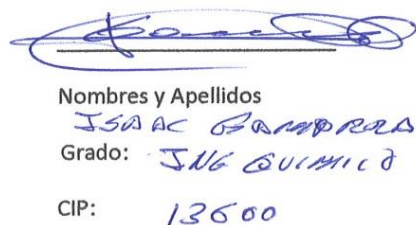 Nombres y Apellidos
ISAAC
Grado: ING QUIMICO
CIP: 13600